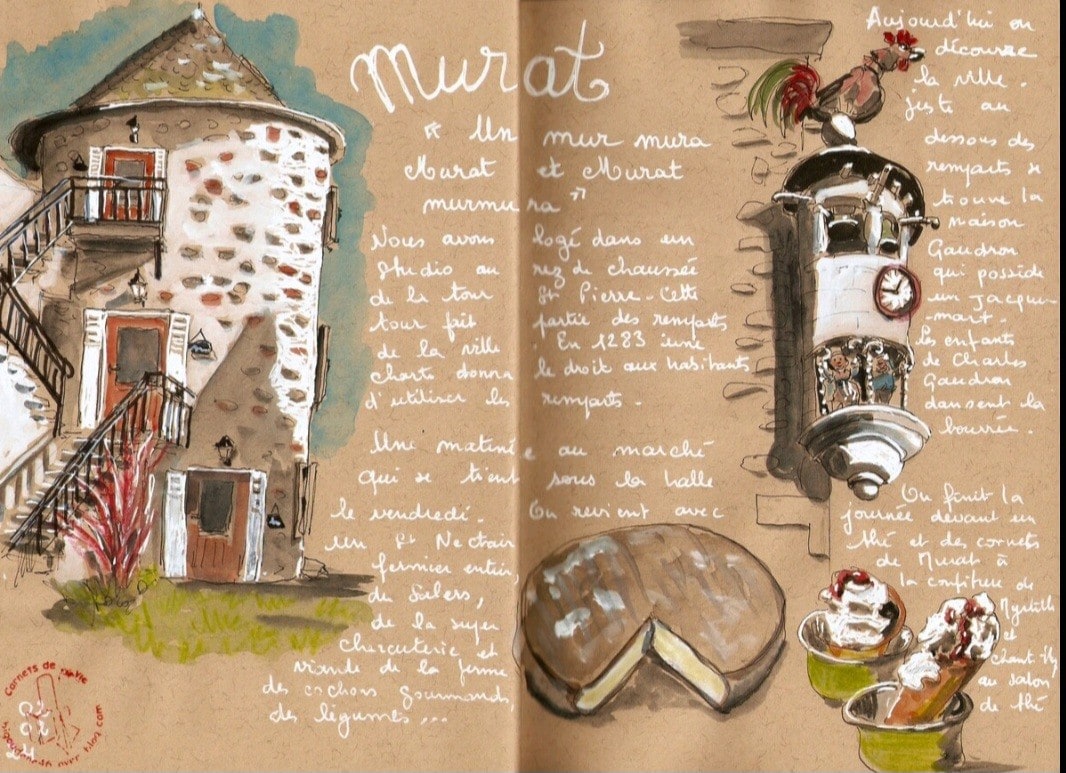 Murat
« Un mur mura
Murat et Murat
murmura »
Nous avons logé dans un
studio au rez de chaussée
de la tour St Pierre - Cette
tour fait partie des remparts
de la ville . En 1283 une
charte donna le droit aux habitants
d'utiliser les remparts .
Une matinée au marché
qui se tient sous la halle
le vendredi . On revient avec
un St Nectaire
fermier entier,
du Salers,
de la super
charcuterie et
viande de la ferme
des cochons gourmands,
des légumes ...
Aujourd'hui on
découvre
la ville .
juste au
dessous des
remparts se
trouve la
maison
Gaudron
qui possède
un jacque-
-mart .
les enfants
de Charles
Gaudron
dansent la
bourrée .
On finit la
journée devant un
thé et des cornets
de Murat à
la confiture de
Myrtille
et
chantilly
au salon
de thé
Carnets de
over blog com